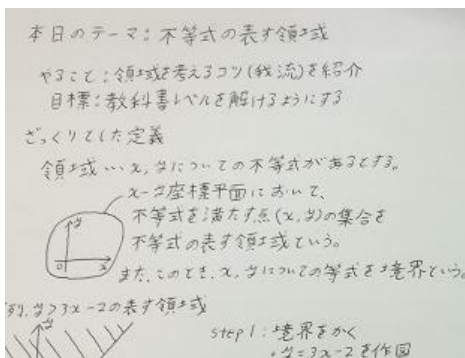 本日のテーマ:不等式の表す領域
やること:領域を考えるコツ(我流)を紹介
目標:教科書レベルを解けるようにする
ざっくりとした定義
領域…x,yについての不等式があるとする。
x-y座標平面において、
不等式を満たす点(x,y)の集合を
不等式の表す領域という。
y
O x
また、このとき、x,yについての等式を境界という。
例,y>3x-2の表す領域
y
step1:境界をかく
・y=3x-2を作図